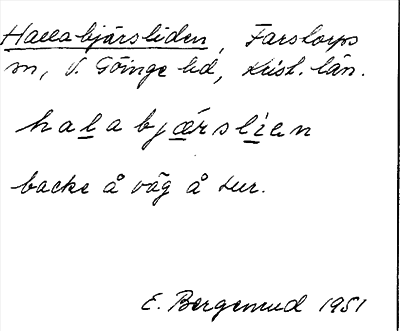 Hallabjärsliden, Farstorps
sn, V. Göinge hd, Krist. län.
halabjærslien
backe å väg å lur.
E. Bergemud 1951